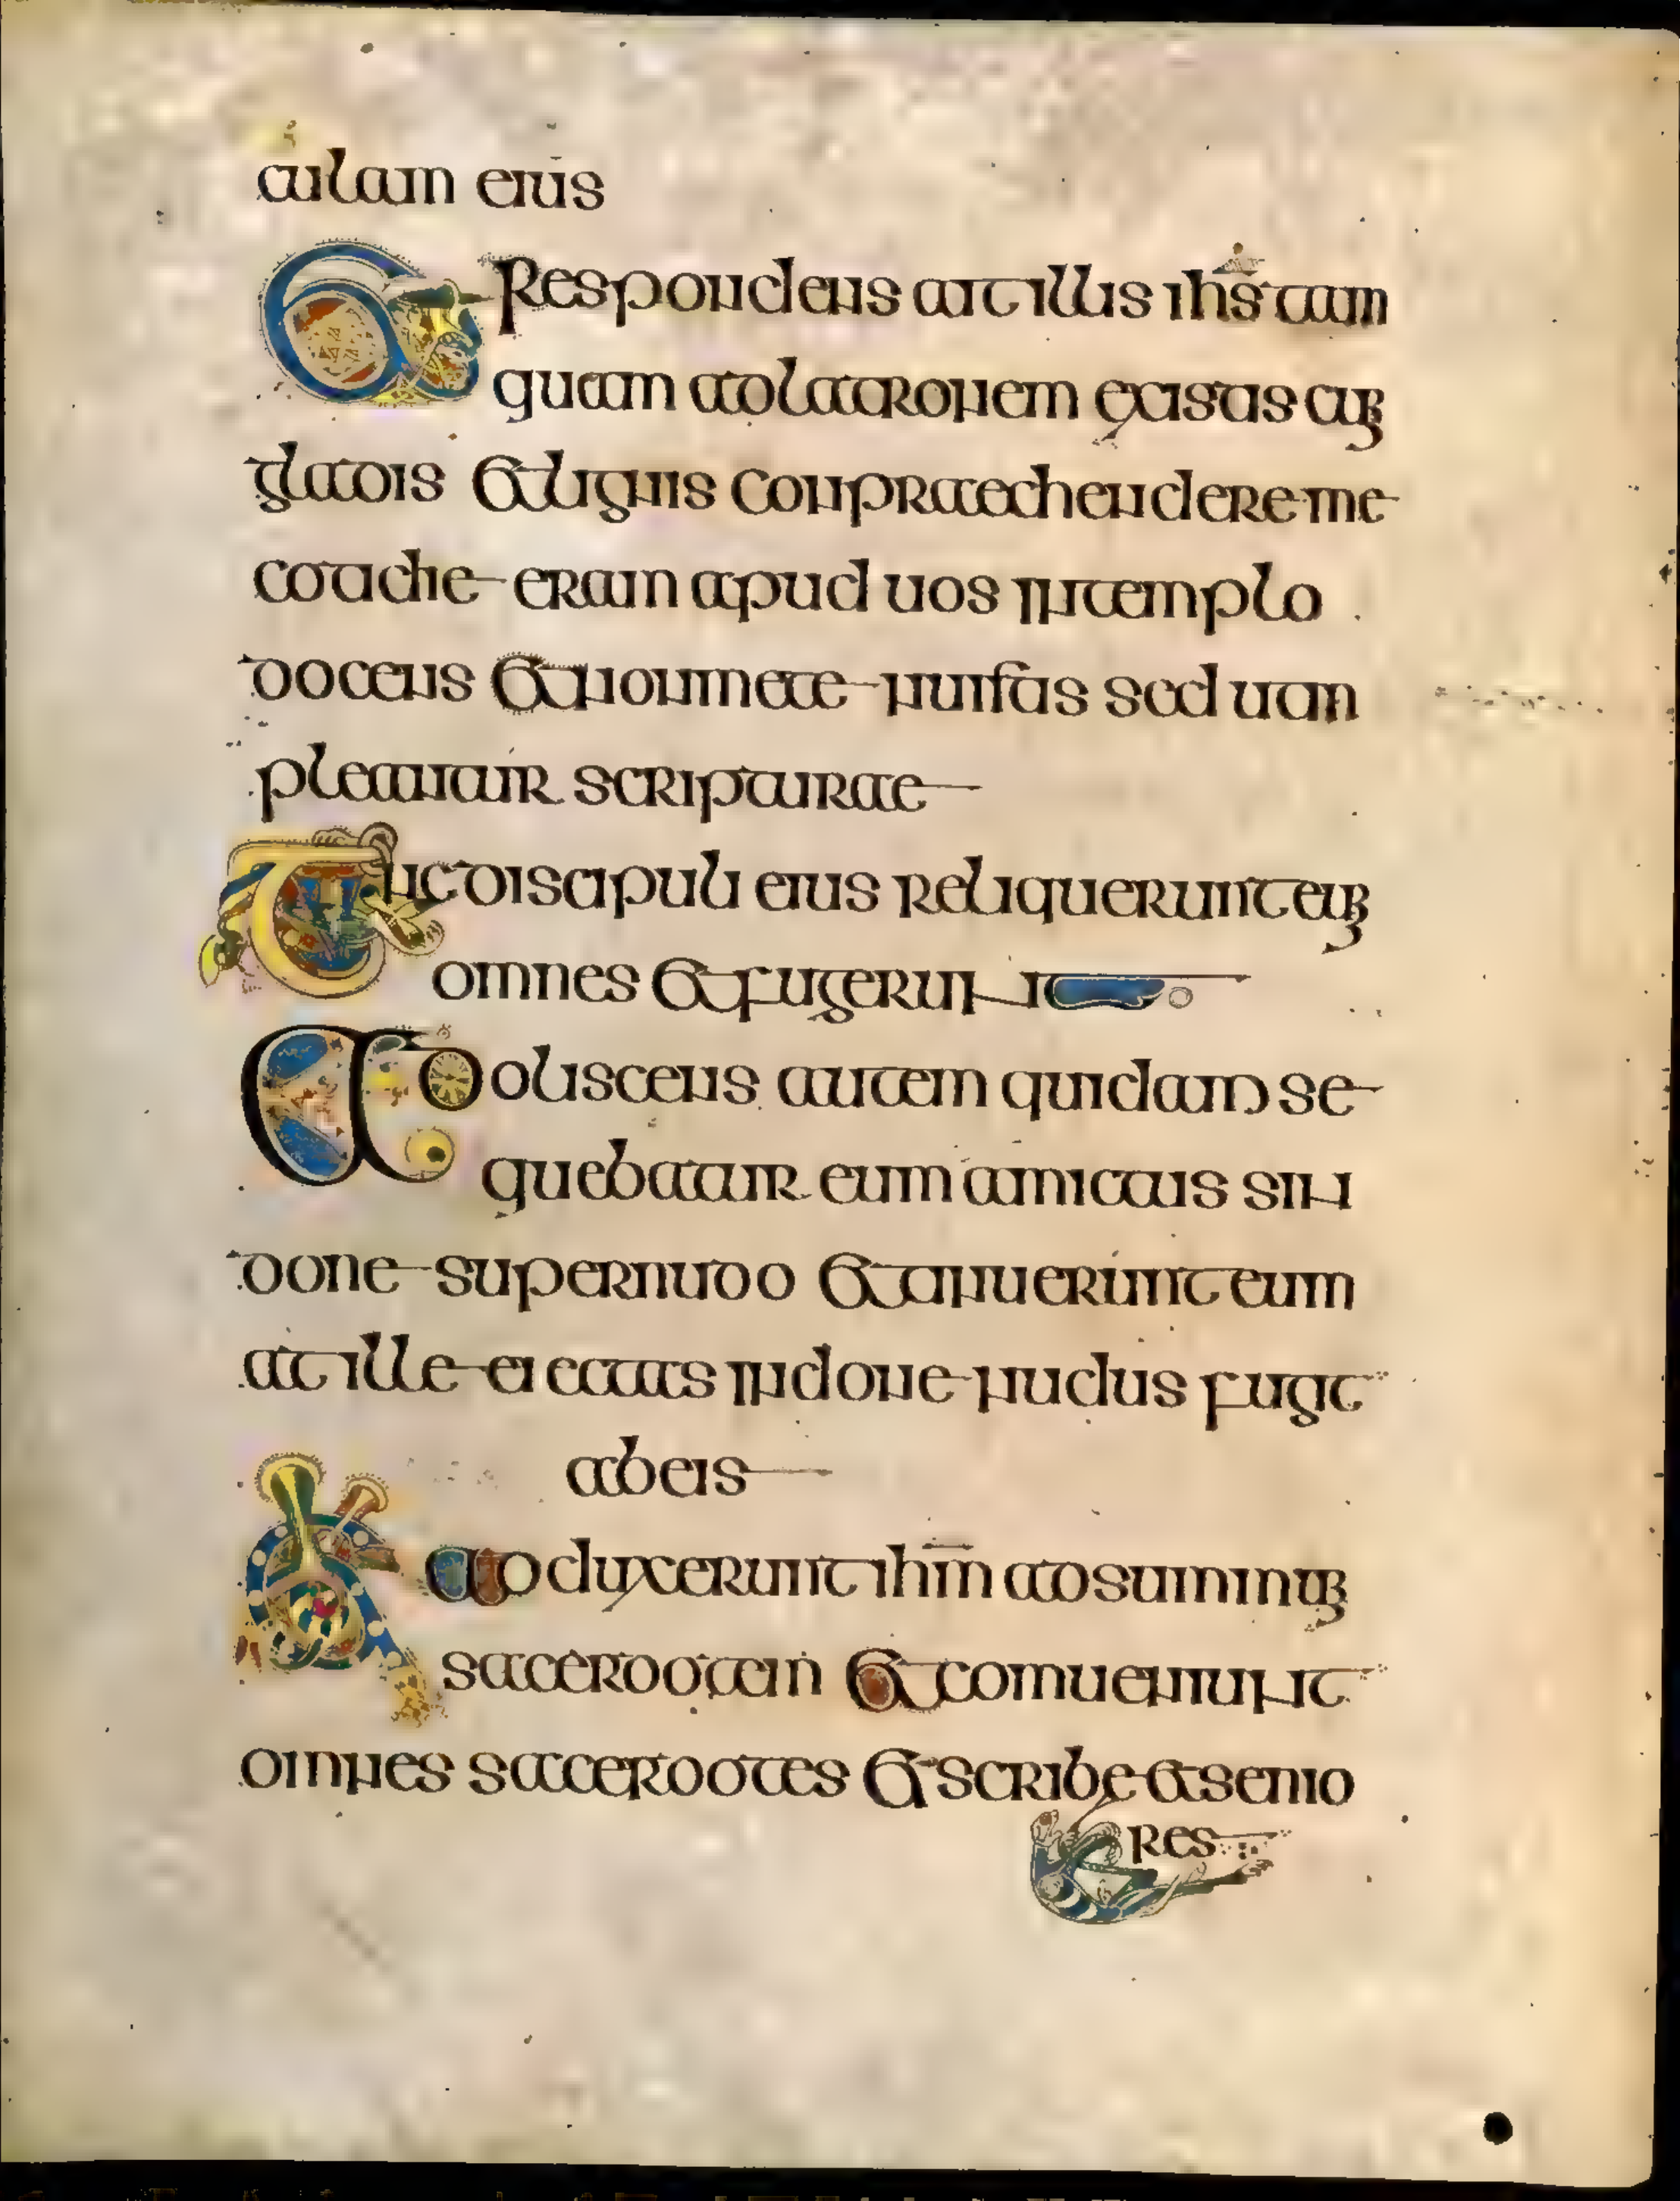 culam eius
Et respondens ait illis ihs tam
quam ad latronem existis cum
gladis et lignis conpraechendere me
cotidie eram apud uos in templo
docens et non me tenuistis sed ut in
pleantur scripturae
Tunc discipuli eius reliquerunt eum
omnes et fugerunt
Adoliscens autem quidam se
quebatur eum amictus sin
done super nudo et tinuerunt eum
at ille eiectas indone nudus fugit
ab eis
Et adduxerunt ihm ad summum
sacerdotem et comueniunt
omnes sacerdotes et scribe et senio
res